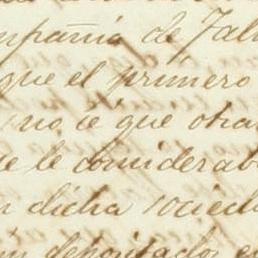 mpañía de Tal
que el primero
no é que otra
ue le considerab
n dicha socied
n depositados e